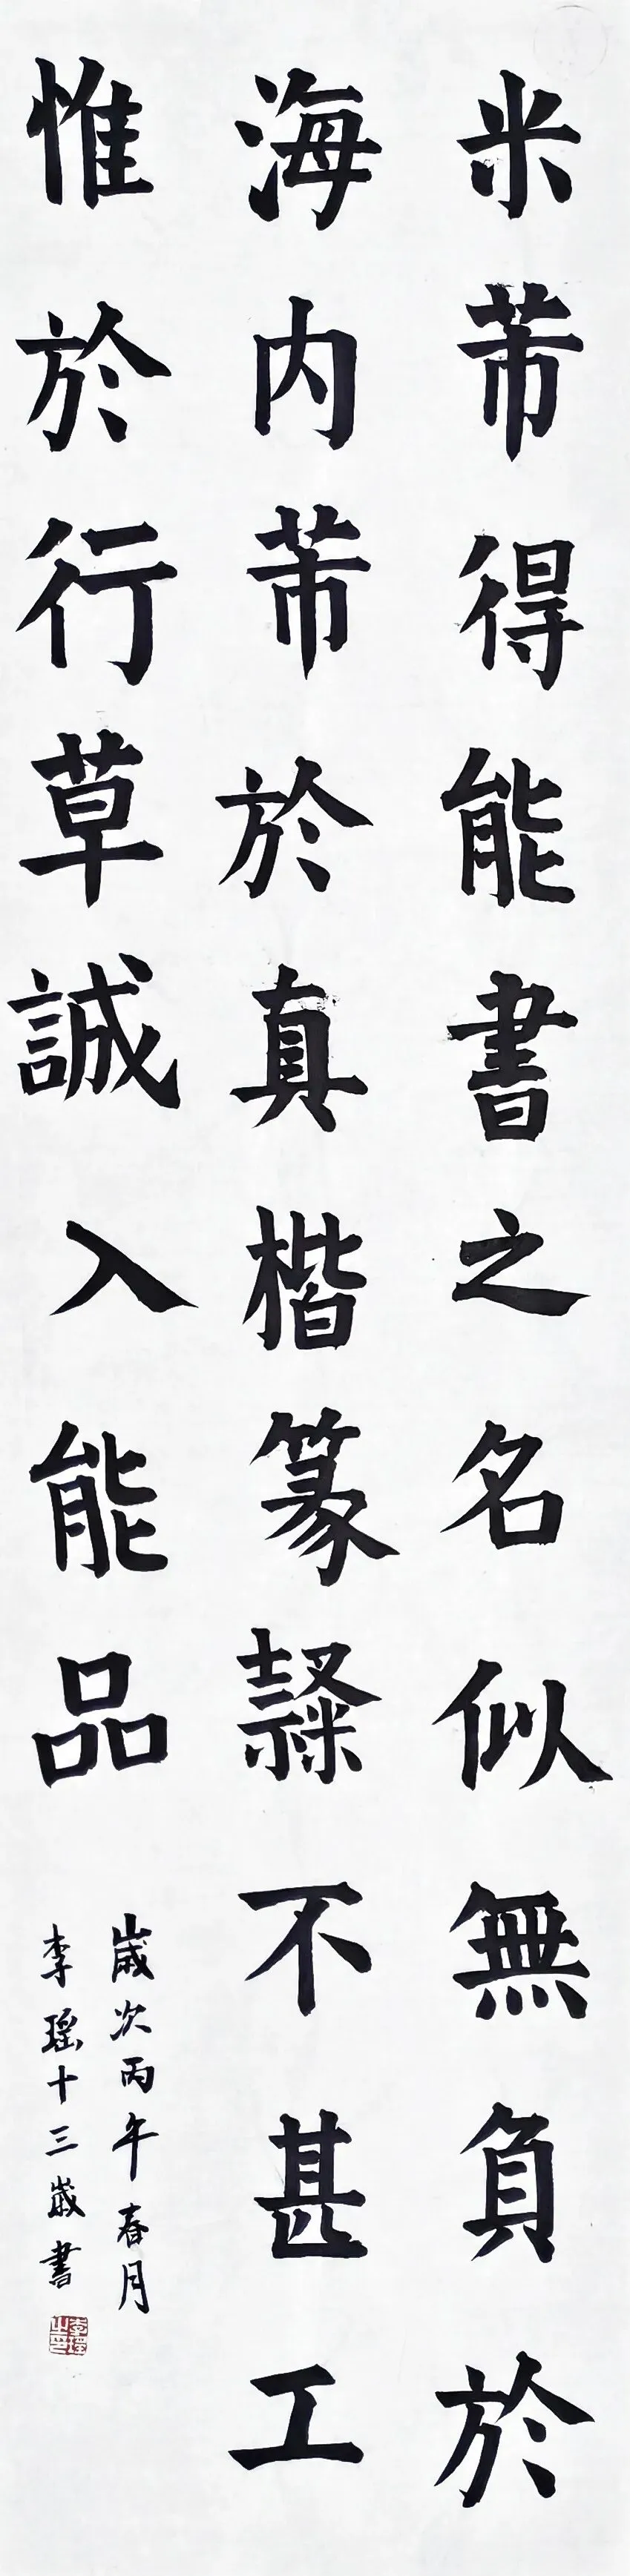 米芾得能書之名似無負於
海内芾於真楷篆隸不甚工
惟於行草誠入能品
歲次丙午春月
李瑶十三歲書
李瑶之印